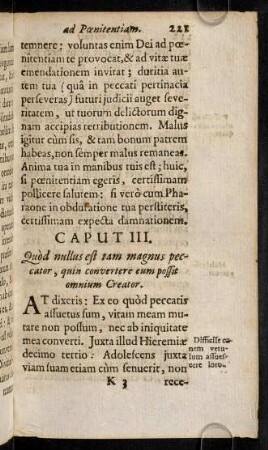 ad Pœnitentiam. 221
temnere; voluntas enim Dei ad pœ-
nitentiam te provocat, & ad vitæ tuæ
emendationem invitat; duritia au-
tem tua (quâ in peccati pertinacia
perseveras) futuri judicii auget seve-
ritatem, ut tuorum delictorum dig-
nam accipias retributionem. Malus
igitur cùm sis, & tam bonum patrem
habeas, non semper malus remaneas.
Anima tua in manibus tuis est; huic,
si pœnitentiam egeris, certissimam
pollicere salutem: si verò cum Pha-
raone in obduratione tua perstiteris,
certissimam expecta damnationem.
CAPUT III.
Quòd nullus est tam magnus pec-
cator, quin convertere eum possit
omnium Creator.
AT dixeris: Ex eo quòd peccatis
assuetus sum, vitam meam mu-
tare non possum, nec ab iniquitate
mea converti. Juxta illud Hieremiæ
decimo tertio: Adolescens juxta
viam suam etiam cùm senuerit, non
Difficile ca-
nem vetu-
lum assues-
cere loro.
K 3 rece-